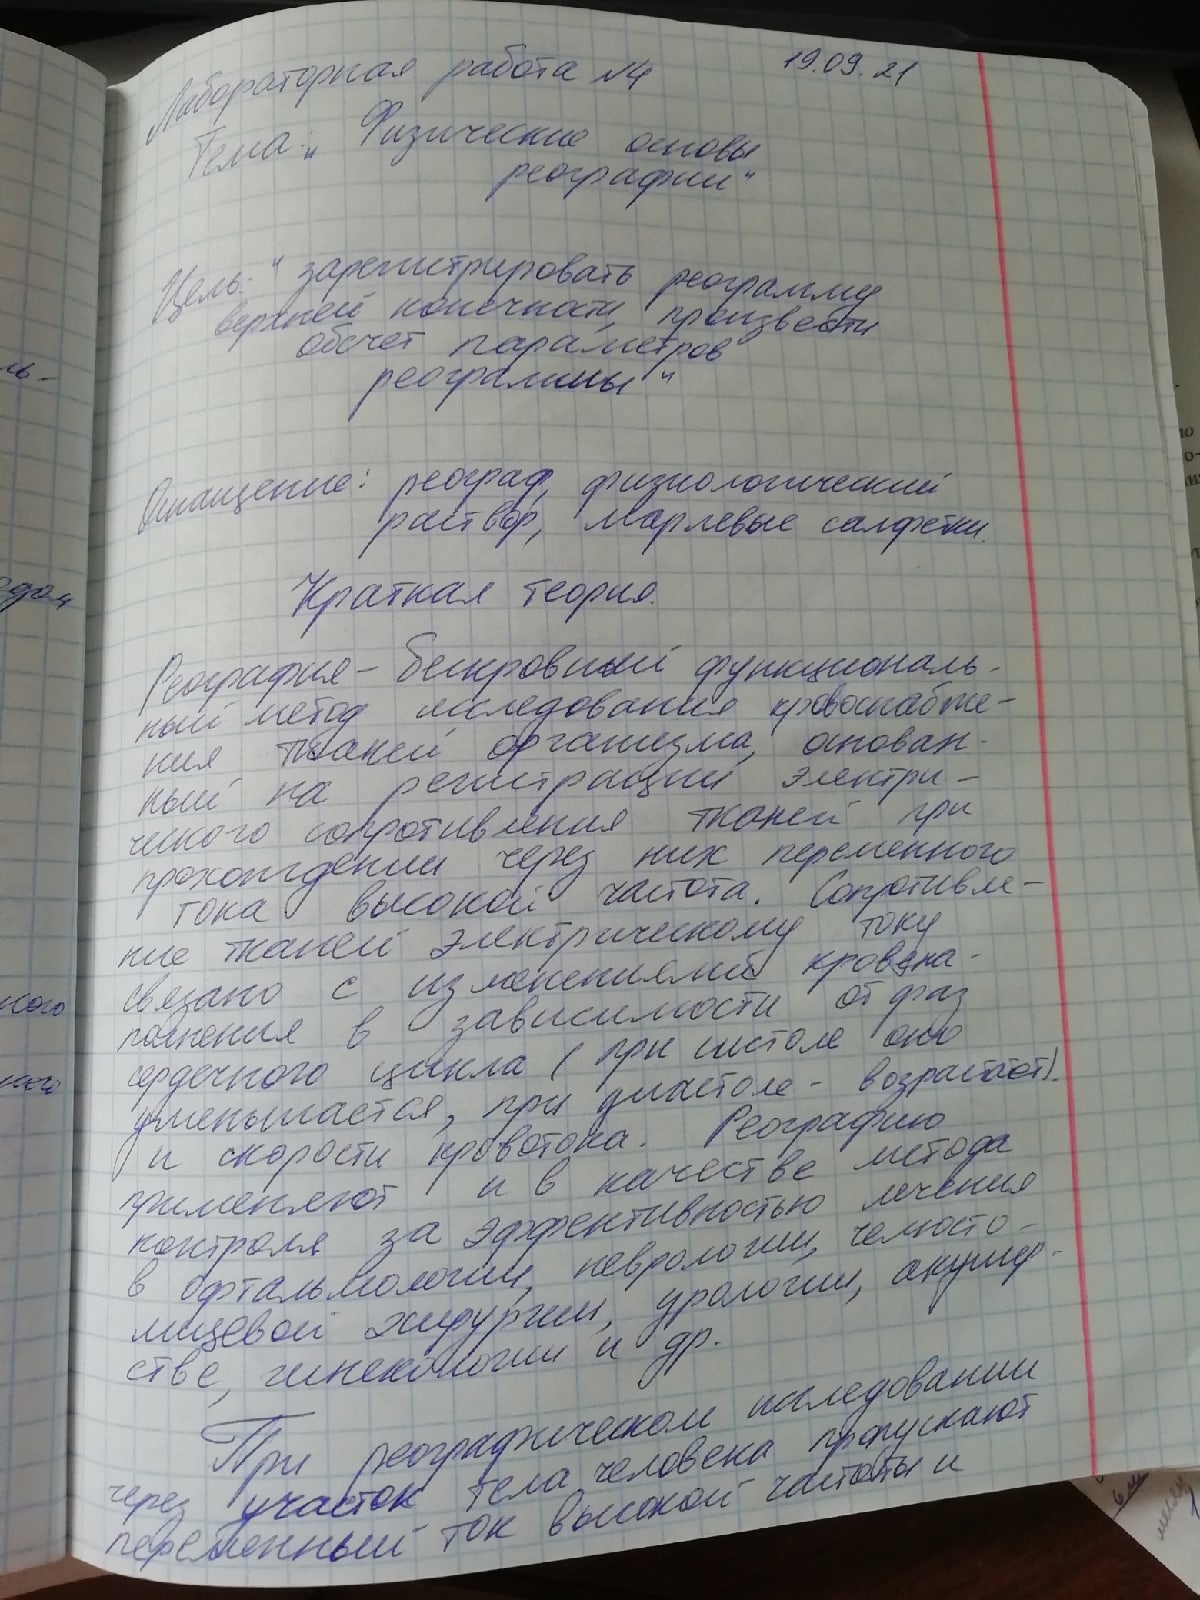 Лабораторная работа №4 19.09.21
Тема: „Физические основы
реографии“
Цель: “зарегистрировать реограмму
верхней конечности, произвести
обсчет параметров
реограммы“
Оснащение: реограф, физиологический
раствор, марлевые салфетки.
Краткая теория.
Реография – бескровный функциональ-
ный метод исследования кровоснабже-
ния тканей организма, основан-
ный на регистрации электри-
ческого сопротивления тканей при
прохождении через них переменного
тока высокой частота. Сопротивле-
ние тканей электрическому току
связано с изменениями кровена-
полнения в зависимости от фаз
сердечного цикла (при систоле оно
уменьшается, при диастоле - возрастает).
и скорости кровотока. Реографию
применяют и в качестве метода
контроля за эффективностью лечения
в офтальмологии, неврологии, челюсто-
лицевой хирургии, урологии, акушер-
стве, гинекологии и др.
При реографическом исследовании
через участок тела человека пропускают
переменный ток высокой частоты и
ль-
одом
ного
ного